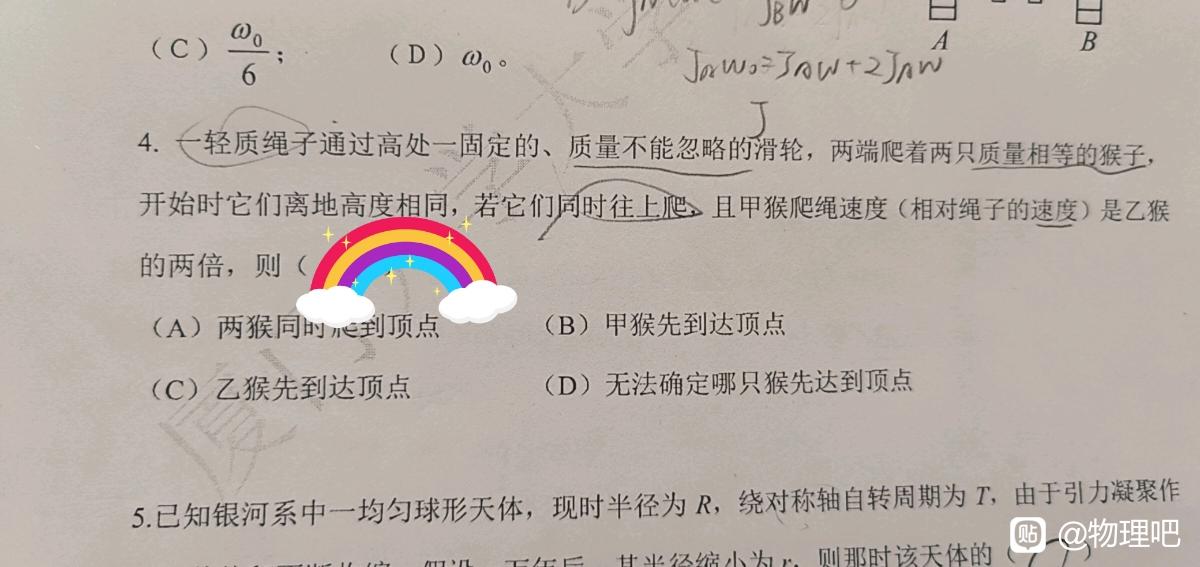 J_B ω
A B
(C) ω₀/6； (D) ω₀。
J_Aω₀=J_Aω+2J_Aω
J
4. 一轻质绳子通过高处一固定的、质量不能忽略的滑轮，两端爬着两只质量相等的猴子，
开始时它们离地高度相同，若它们同时往上爬，且甲猴爬绳速度（相对绳子的速度）是乙猴
的两倍，则（
（A）两猴同时爬到顶点 （B）甲猴先到达顶点
（C）乙猴先到达顶点 （D）无法确定哪只猴先达到顶点
5.已知银河系中一均匀球形天体，现时半径为 R，绕对称轴自转周期为 T，由于引力凝聚作
其半径缩小为 r，则那时该天体的（
贴 @物理吧